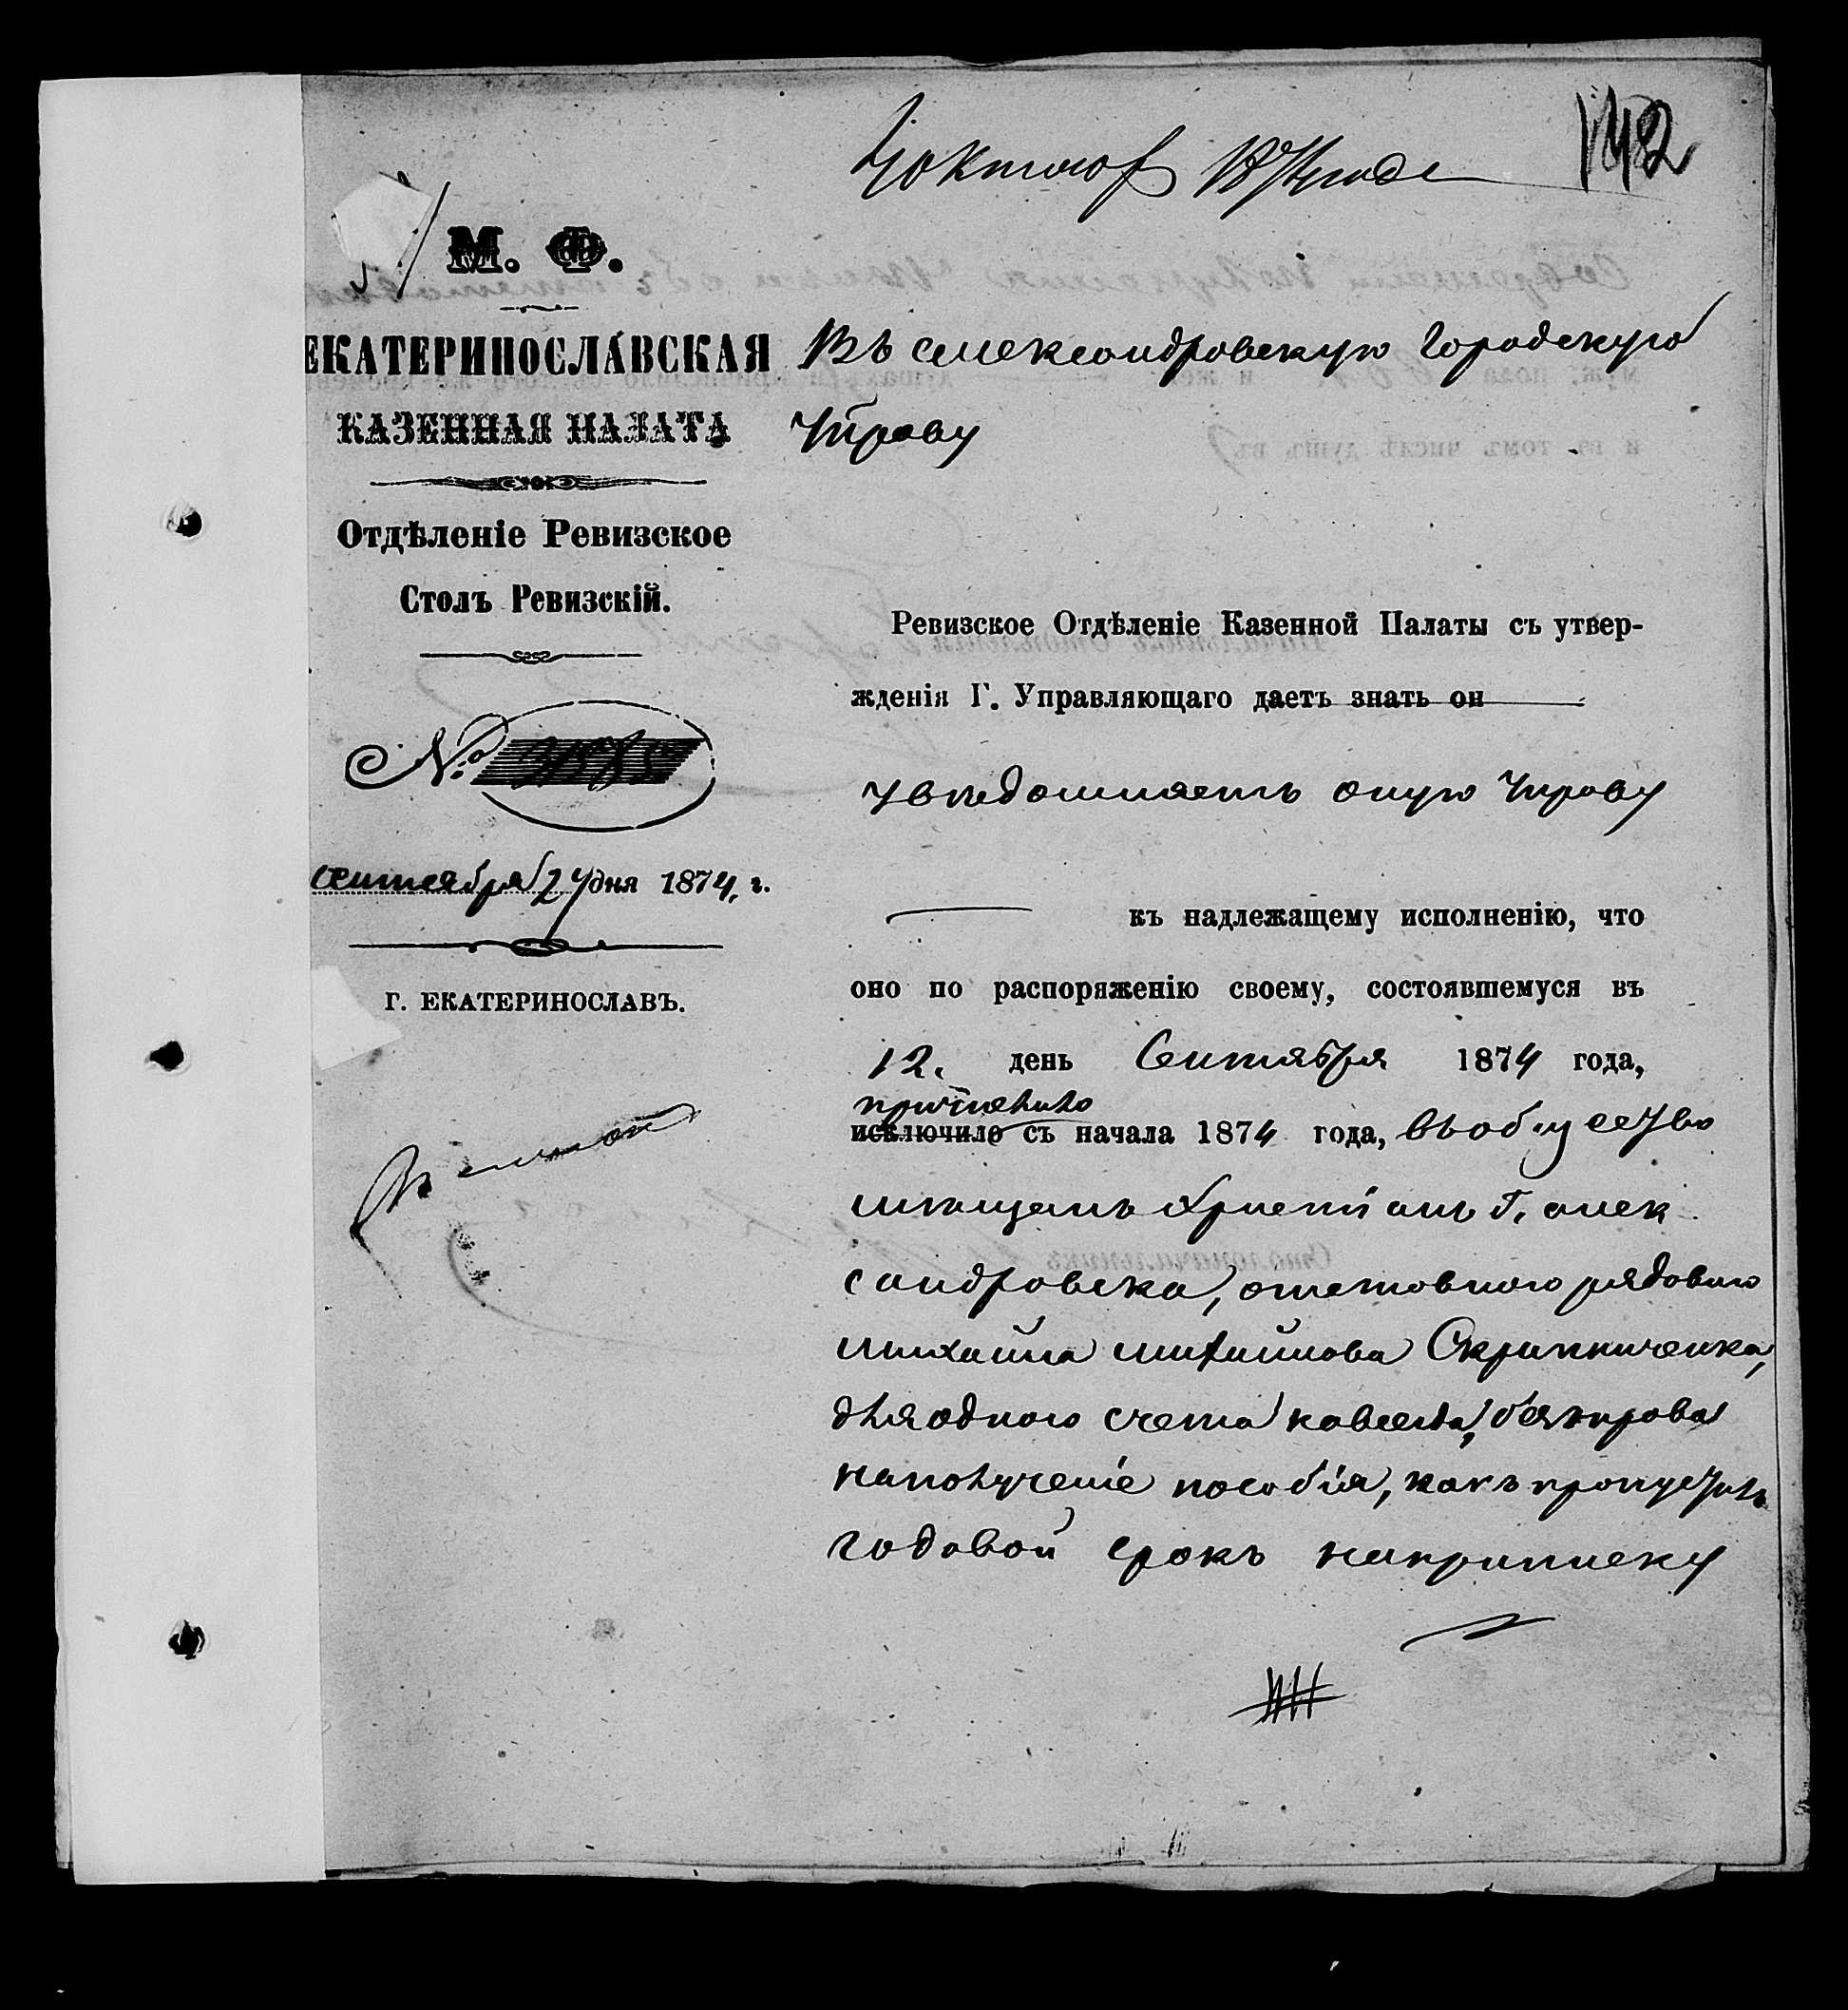 142
М. Ф.
ЕКАТЕРИНОСЛАВСКАЯ
КАЗЕННАЯ ПАЛАТА
Отдѣленіе Ревизское
Столъ Ревизскій.
№
сентября 24 дня 1874, г.
Г. ЕКАТЕРИНОСЛАВЪ.
Въ Александровскую Городскую
Управу
Ревизское Отдѣленіе Казенной Палаты съ утвер-
жденія Г. Управляющаго даетъ знать он
увѣдомляетъ оную Управу
къ надлежащему исполненію, что
оно по распоряженію своему, состоявшемуся въ
12. день Сентября 1874 года,
причислило
исключило съ начала 1874 года, въ общество
мѣщанъ Христіанъ г. Алек
сандровска, отставного рядового
Михаила Михайлова Скрипниченка,
для одного счета навсегда, безъ права
на полученіе пособія, какъ пропустивъ
годовой срокъ на приписку